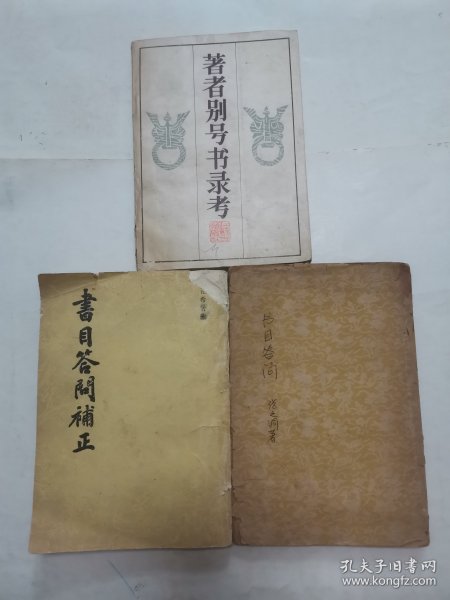 著者别号书录考
書目答問補正
书目答问
张之洞著
孔夫子旧书网
www.kongfz.com